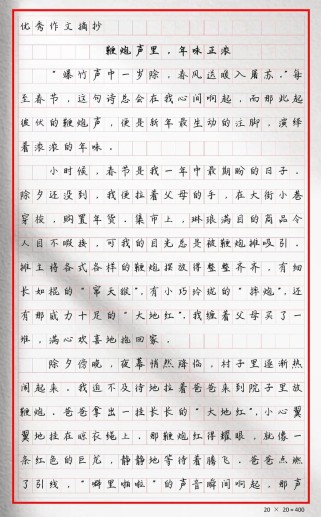 优秀作文摘抄
鞭炮声里，年味正浓
“爆竹声中一岁除，春风送暖入屠苏。”每
至春节，这句诗总会在我心间响起，而那此起
彼伏的鞭炮声，便是新年最生动的注脚，演绎
着浓浓的年味。
小时候，春节是我一年中最期盼的日子。
除夕还没到，我便拉着父母的手，在大街小巷
穿梭，购置年货。集市上，琳琅满目的商品令
人目不暇接，可我的目光总是被鞭炮摊吸引。
摊主将各式各样的鞭炮摆放得整整齐齐，有细
长如棍的“窜天猴”，有小巧玲珑的“摔炮”，还
有那威力十足的“大地红”。我缠着父母买了一
堆，满心欢喜地抱回家。
除夕傍晚，夜幕悄然降临，村子里逐渐热
闹起来。我迫不及待地拉着爸爸来到院子里放
鞭炮。爸爸拿出一挂长长的“大地红”，小心翼
翼地挂在晾衣绳上，那鞭炮红得耀眼，就像一
条红色的巨龙，静静地等待着腾飞。爸爸点燃
了引线，“噼里啪啦”的声音瞬间响起，那声
20 × 20 = 400